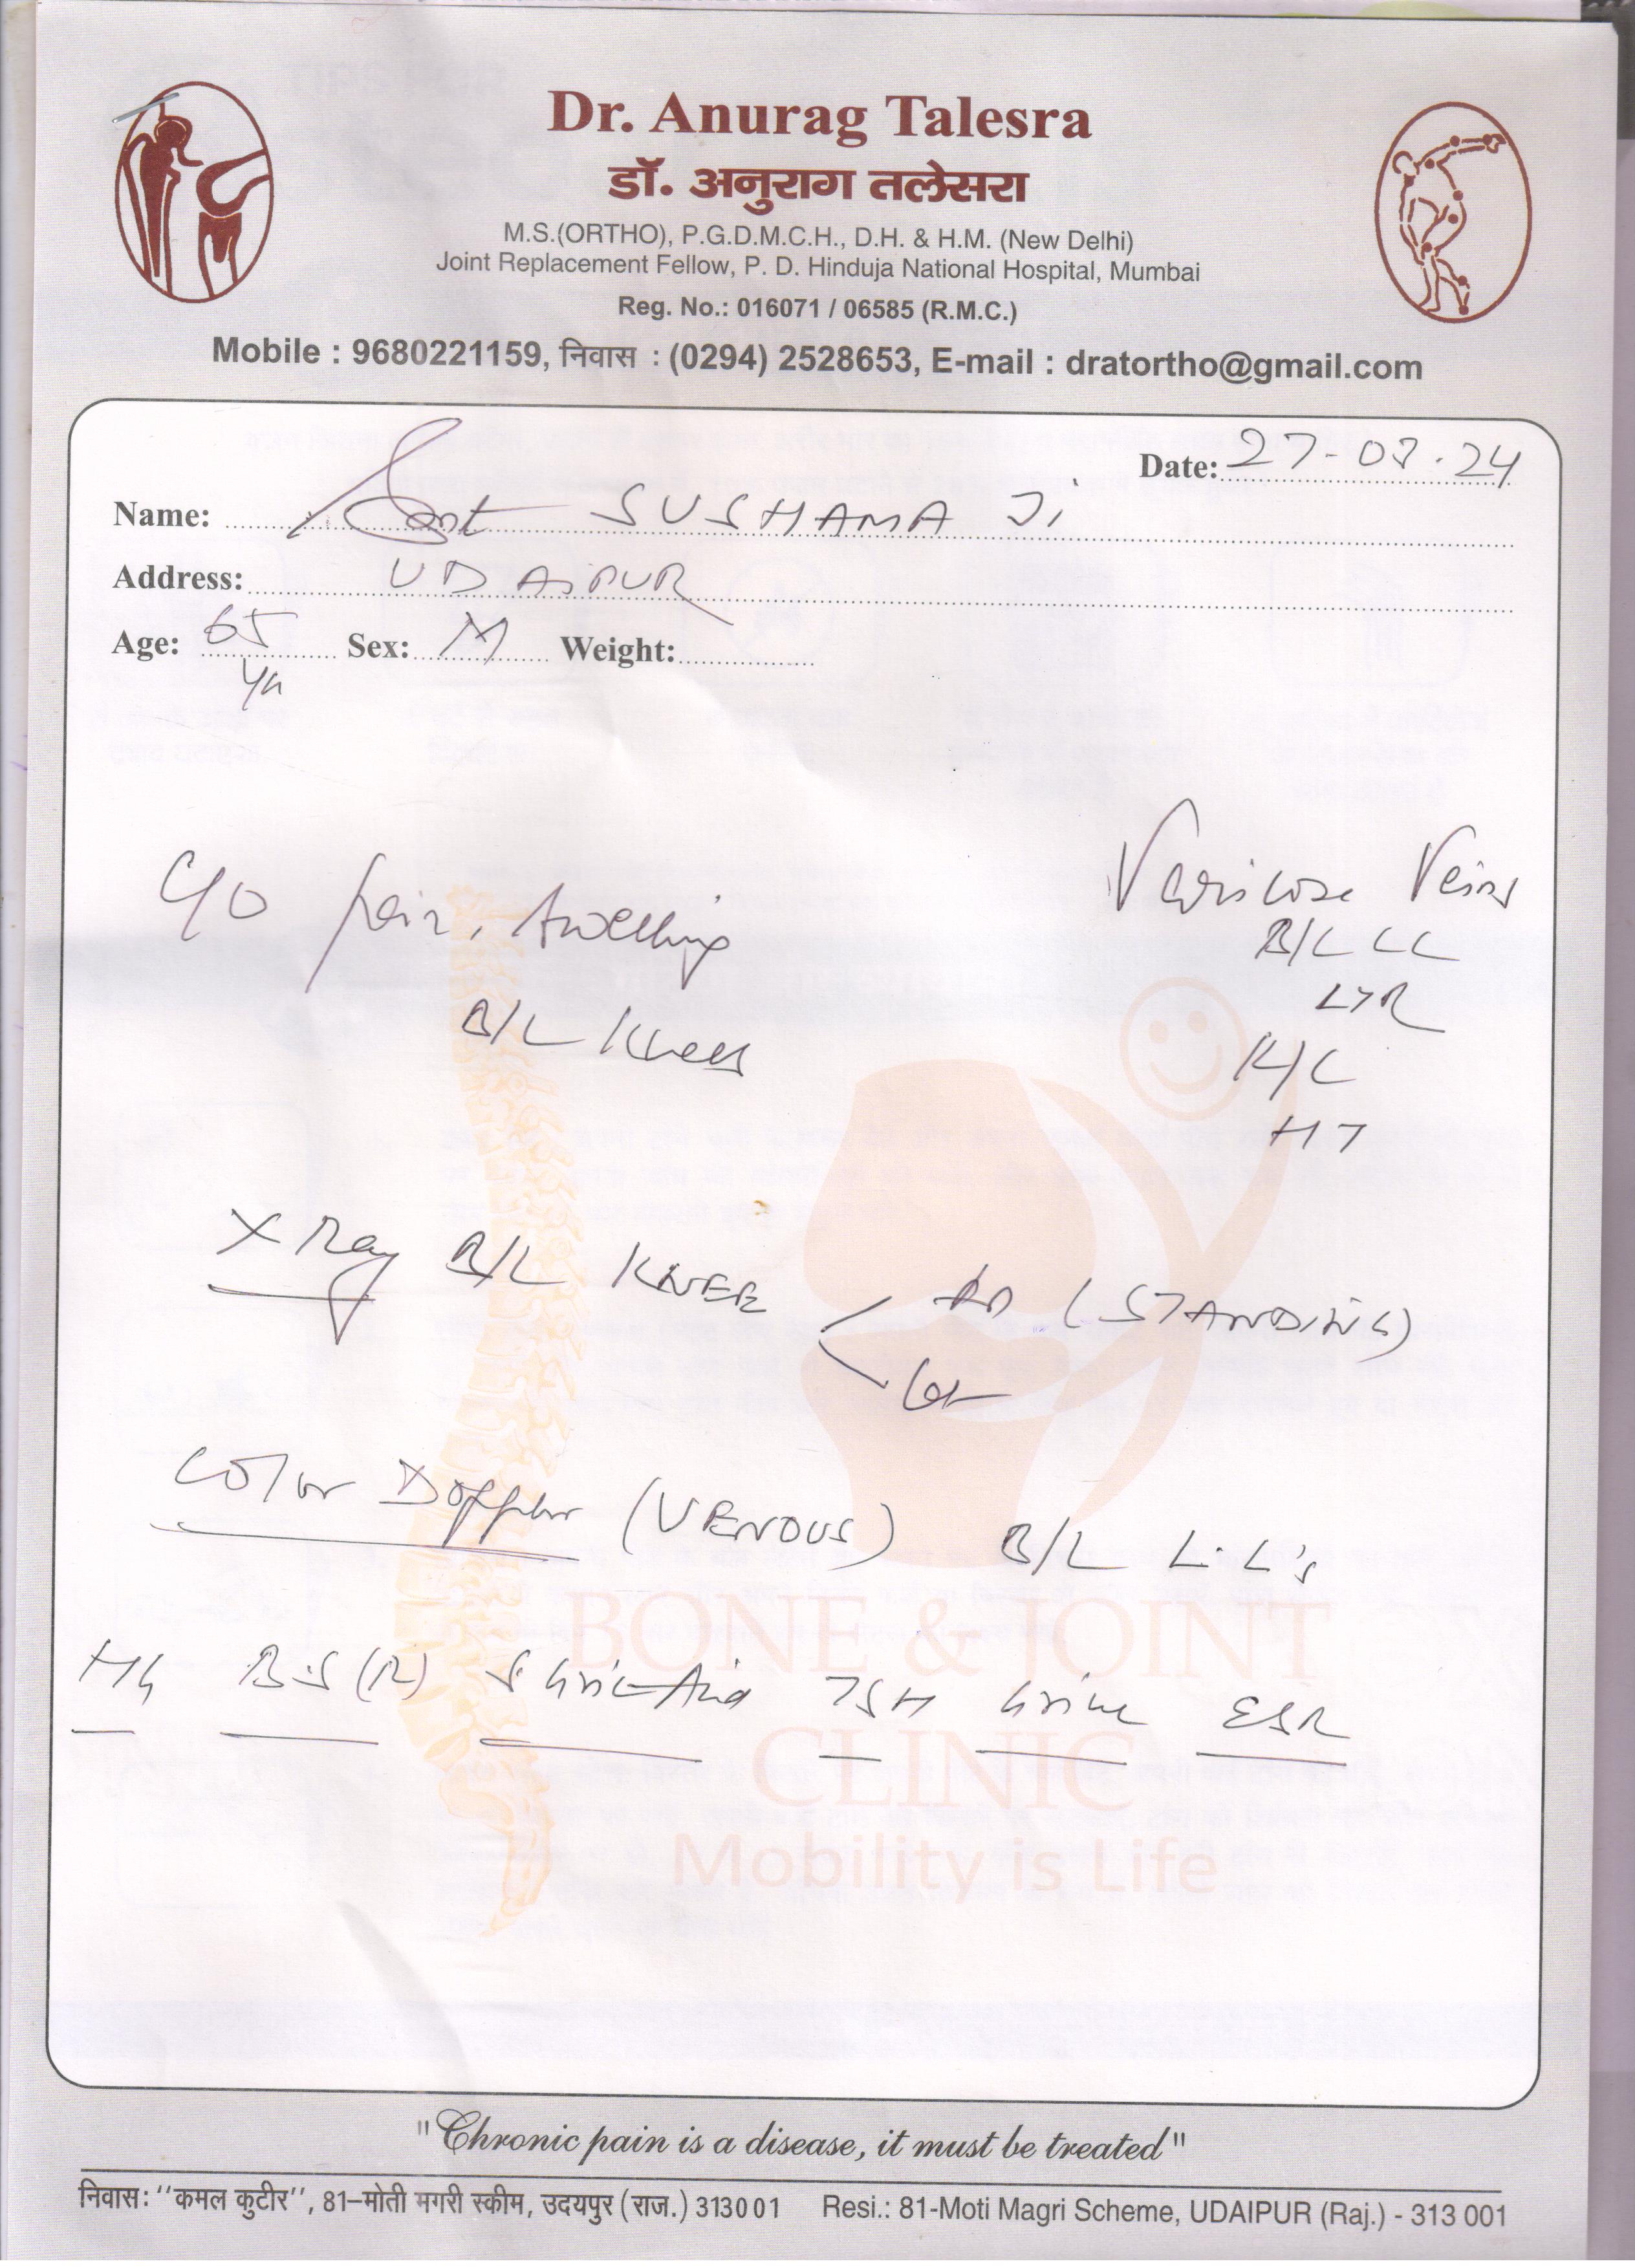 Dr. Anurag Talesra
डॉ. अनुराग तलेसरा
M.S.(ORTHO), P.G.D.M.C.H., D.H. & H.M. (New Delhi)
Joint Replacement Fellow, P. D. Hinduja National Hospital, Mumbai
Reg. No.: 016071 / 06585 (R.M.C.)
Mobile : 9680221159, निवास : (0294) 2528653, E-mail : dratortho@gmail.com
Date: 27-08.24
Name: SUSHAMA Ji
Address: UDAiPUR
Age: 65 Yr Sex: M Weight:
C/o pain, swelling
B/L Knees
Varicose Veins
B/L LL
L>R
K/C
HT
X Ray B/L KNEE
AP (STANDING)
Lat
Color Doppler (VENOUS) B/L L.L's
B.S(R) S Uric Acid TSH Urine ESR
BONE & JOINT
CLINIC
Mobility is Life
"Chronic pain is a disease, it must be treated"
निवास: ''कमल कुटीर'', 81-मोती मगरी स्कीम, उदयपुर (राज.) 313001 Resi.: 81-Moti Magri Scheme, UDAIPUR (Raj.) - 313 001